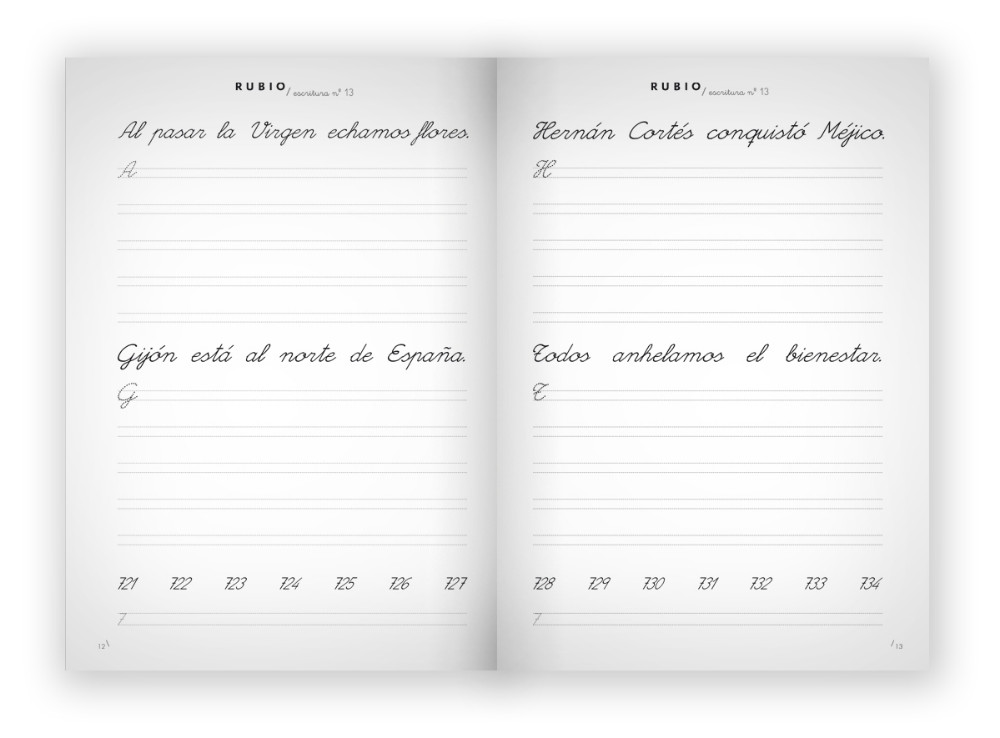 RUBIO/ escritura nº 13
Al pasar la Virgen echamos flores.
A
Gijón está al norte de España.
G
721 722 723 724 725 726 727
7
12\
RUBIO/ escritura nº 13
Hernán Cortés conquistó Méjico.
H
Todos anhelamos el bienestar.
T
728 729 730 731 732 733 734
7
/13